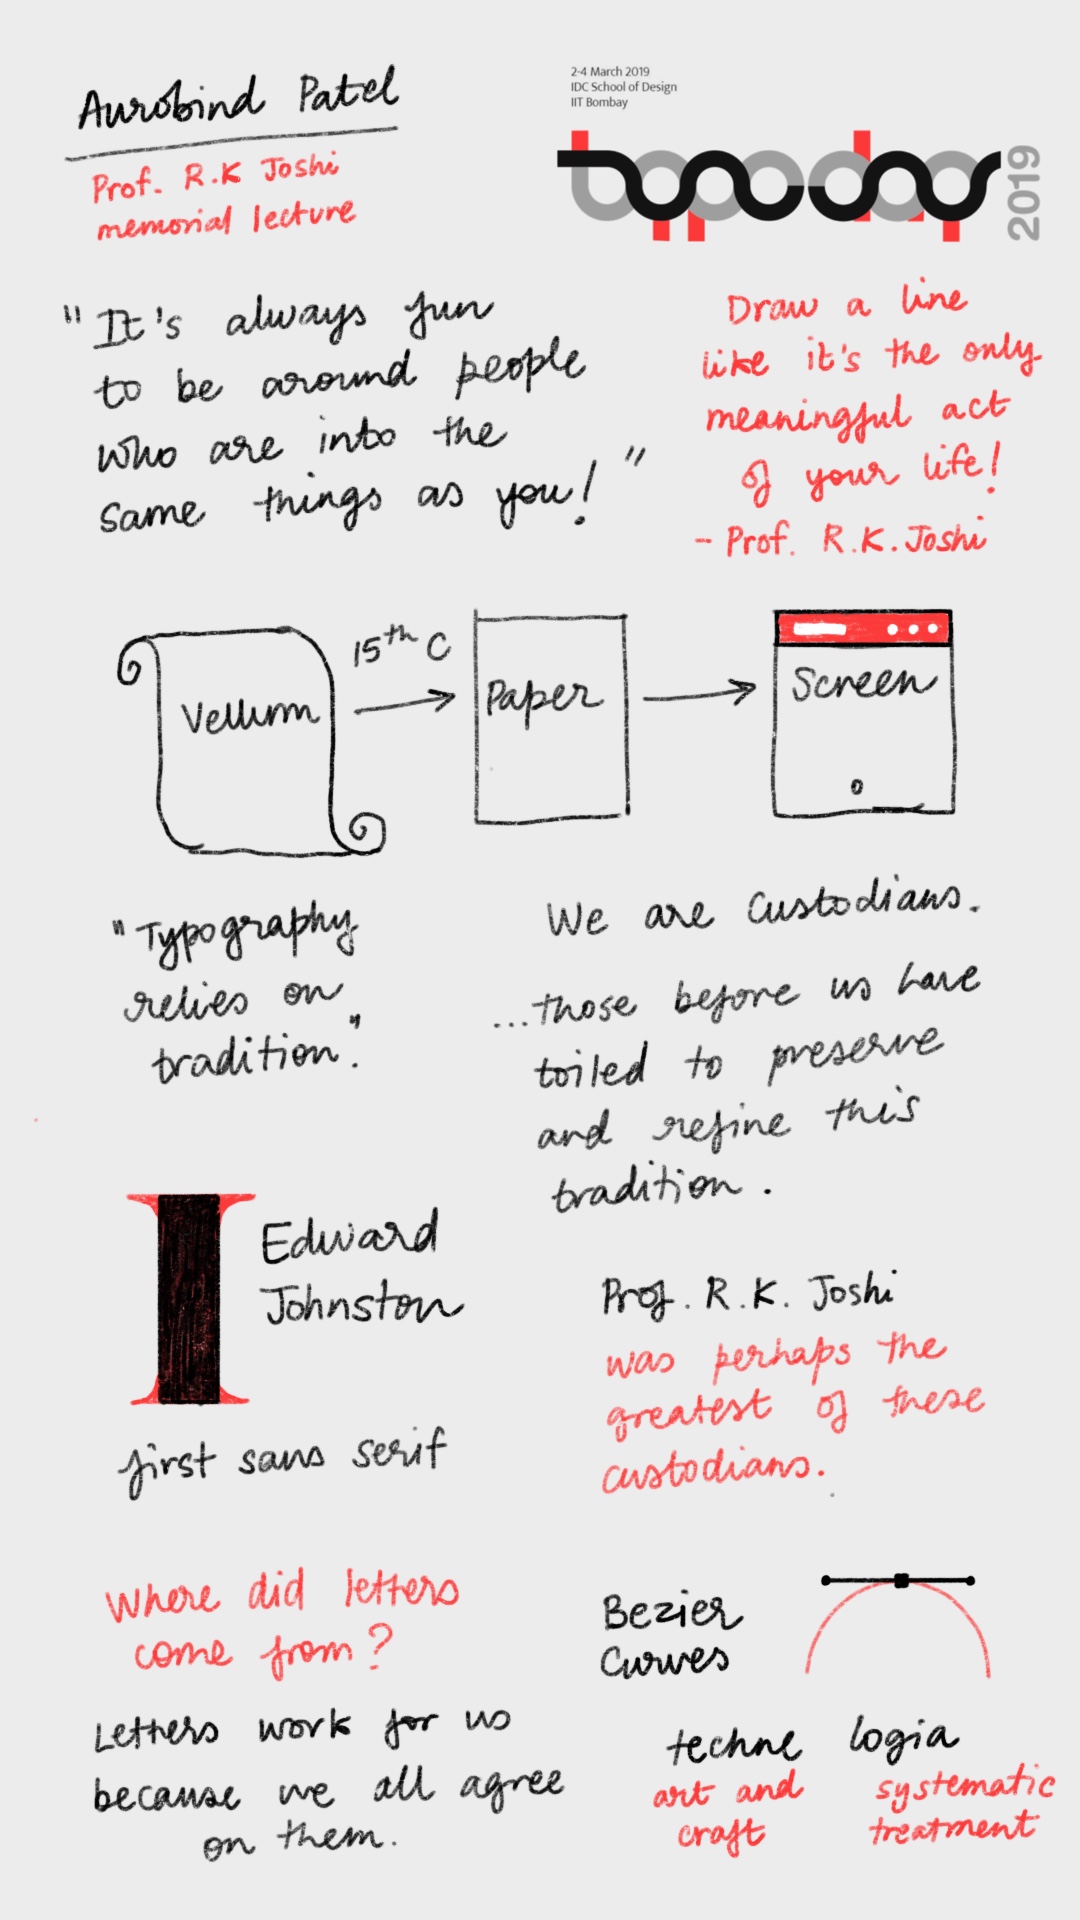 Aurobind Patel
Prof. R.K Joshi
memorial lecture
2-4 March 2019
IDC School of Design
IIT Bombay
typoday
2019
"It's always fun
to be around people
who are into the
same things as you!"
Draw a line
like it's the only
meaningful act
of your life!
- Prof. R.K. Joshi
Vellum
15th C
Paper
Screen
"Typography
relies on
tradition."
We are custodians.
...those before us have
toiled to preserve
and refine this
tradition.
I
Edward
Johnston
first sans serif
Prof. R.K. Joshi
was perhaps the
greatest of these
custodians.
Where did letters
come from?
Letters work for us
because we all agree
on them.
Bezier
Curves
techne logia
art and
craft
systematic
treatment